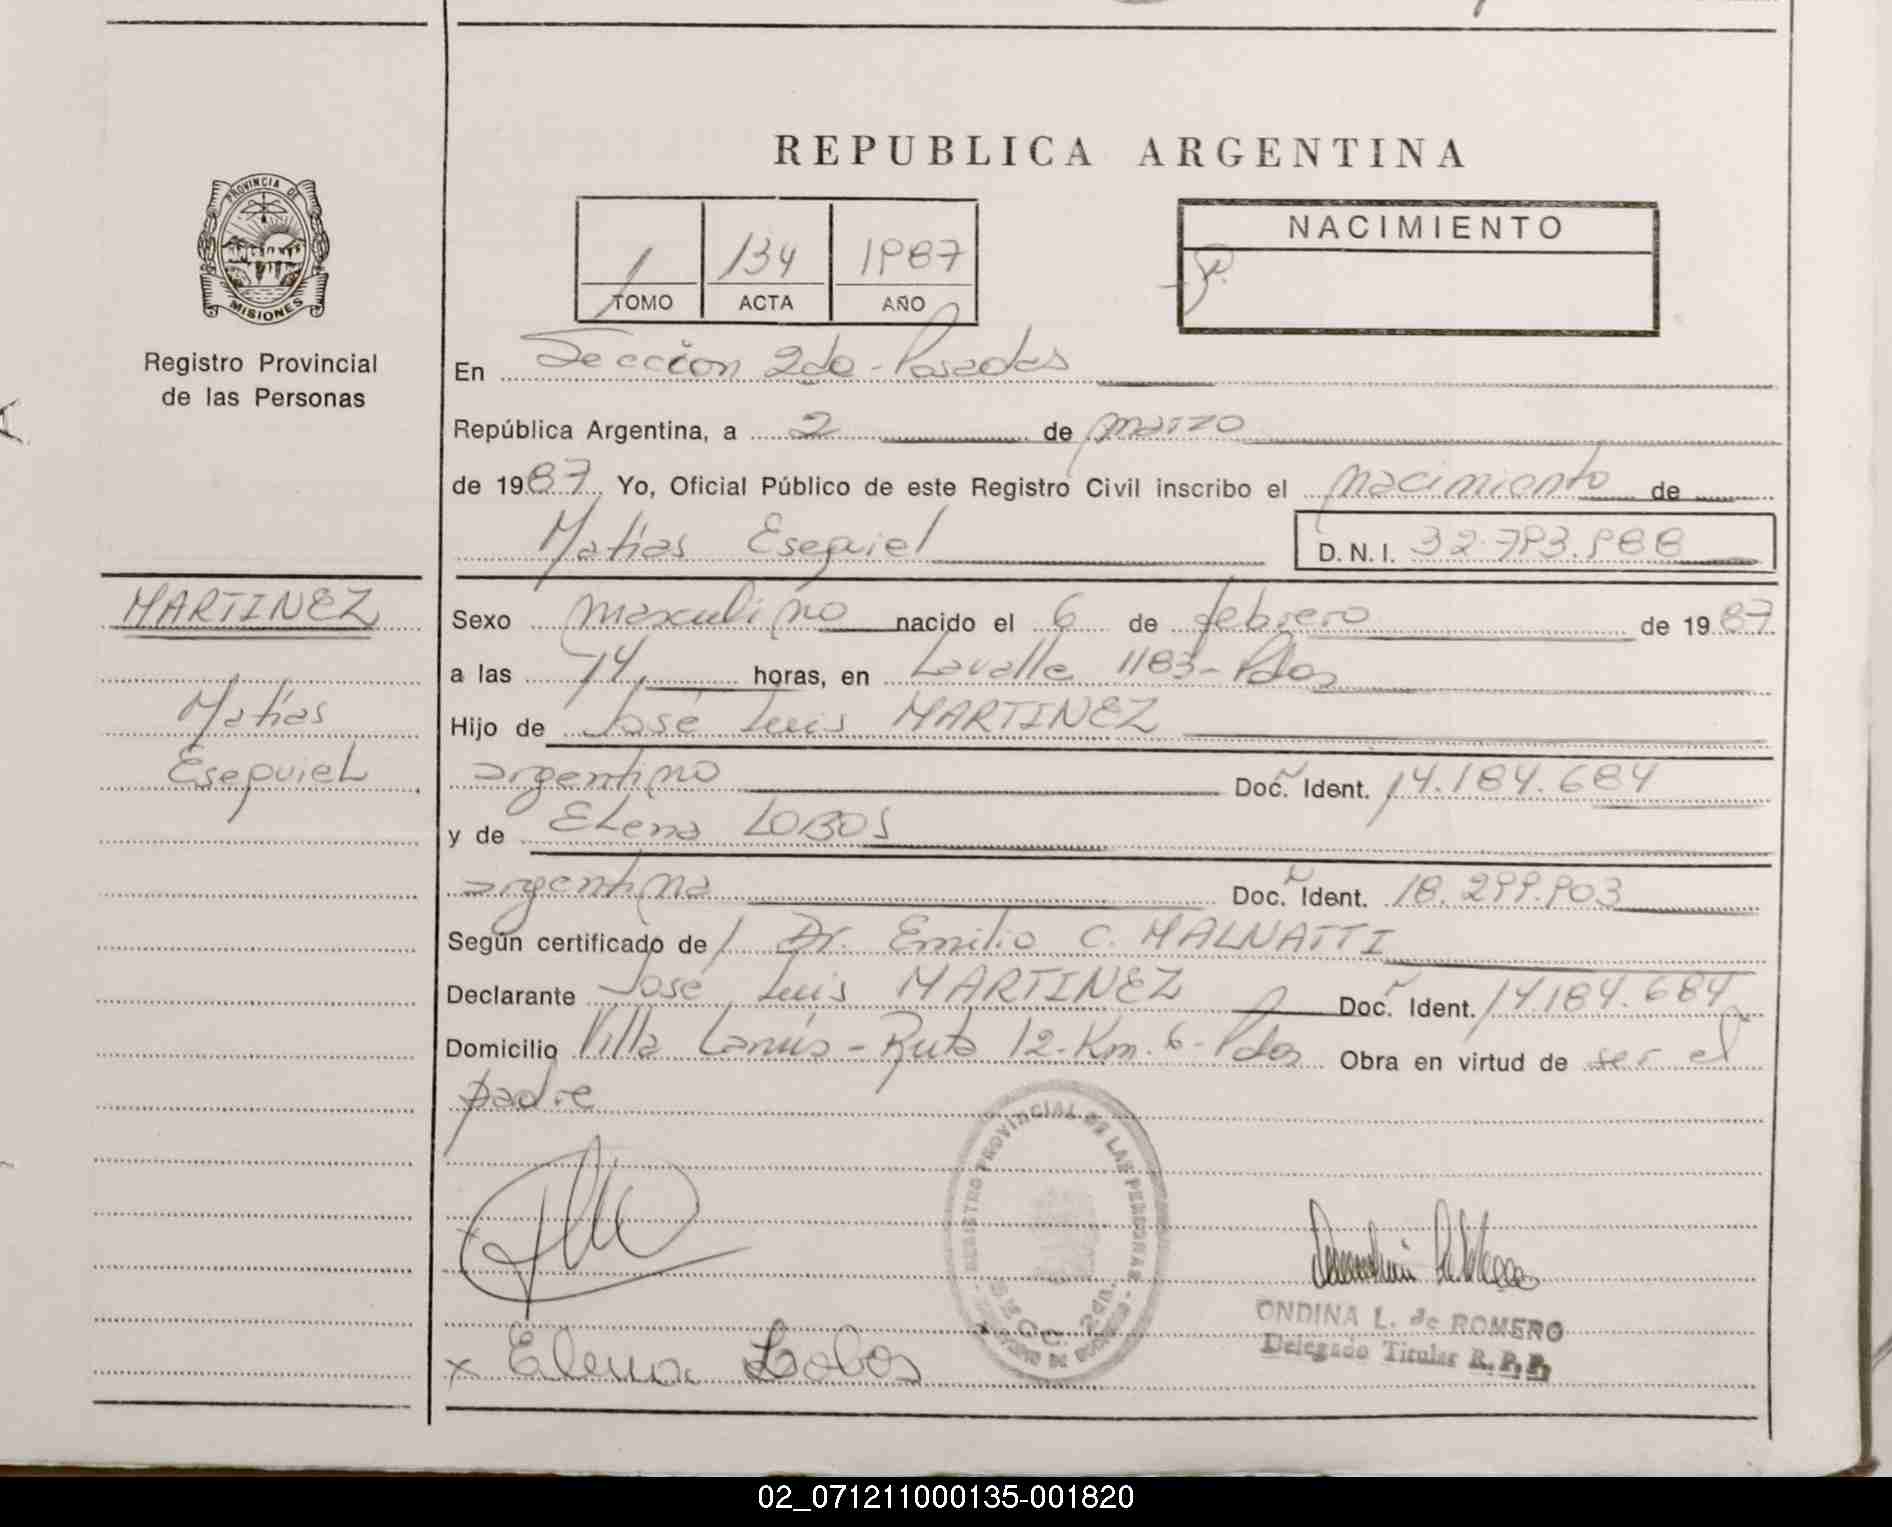 REPUBLICA ARGENTINA
PROVINCIA DE
MISIONES
Registro Provincial
de las Personas
1 134 1987
TOMO ACTA AÑO
NACIMIENTO
En Sección 2da - Posadas
República Argentina, a 2 de marzo
de 1987 Yo, Oficial Público de este Registro Civil inscribo el nacimiento de
Matías Esequiel D.N.I. 32.793.988
MARTINEZ
Matías
Esequiel
Sexo masculino nacido el 6 de febrero de 1987
a las 14 horas, en Lavalle 1183 - Pdas
Hijo de José Luis MARTINEZ
argentino Doc. Ident. 14.184.684
y de Elena LOBOS
argentina Doc. Ident. 18.299.903
Según certificado de Dr. Emilio C. MALNATTI
Declarante José Luis MARTINEZ Doc. Ident. 14.184.684
Domicilio Villa Lanús - Ruta 12 - Km. 6 - Pdas Obra en virtud de ser el
padre
REGISTRO PROVINCIAL DE LAS PERSONAS
SECC. 2da.
ONDINA L. de ROMERO
Delegado Titular R.P.P.
x Elena Lobos
02_071211000135-001820